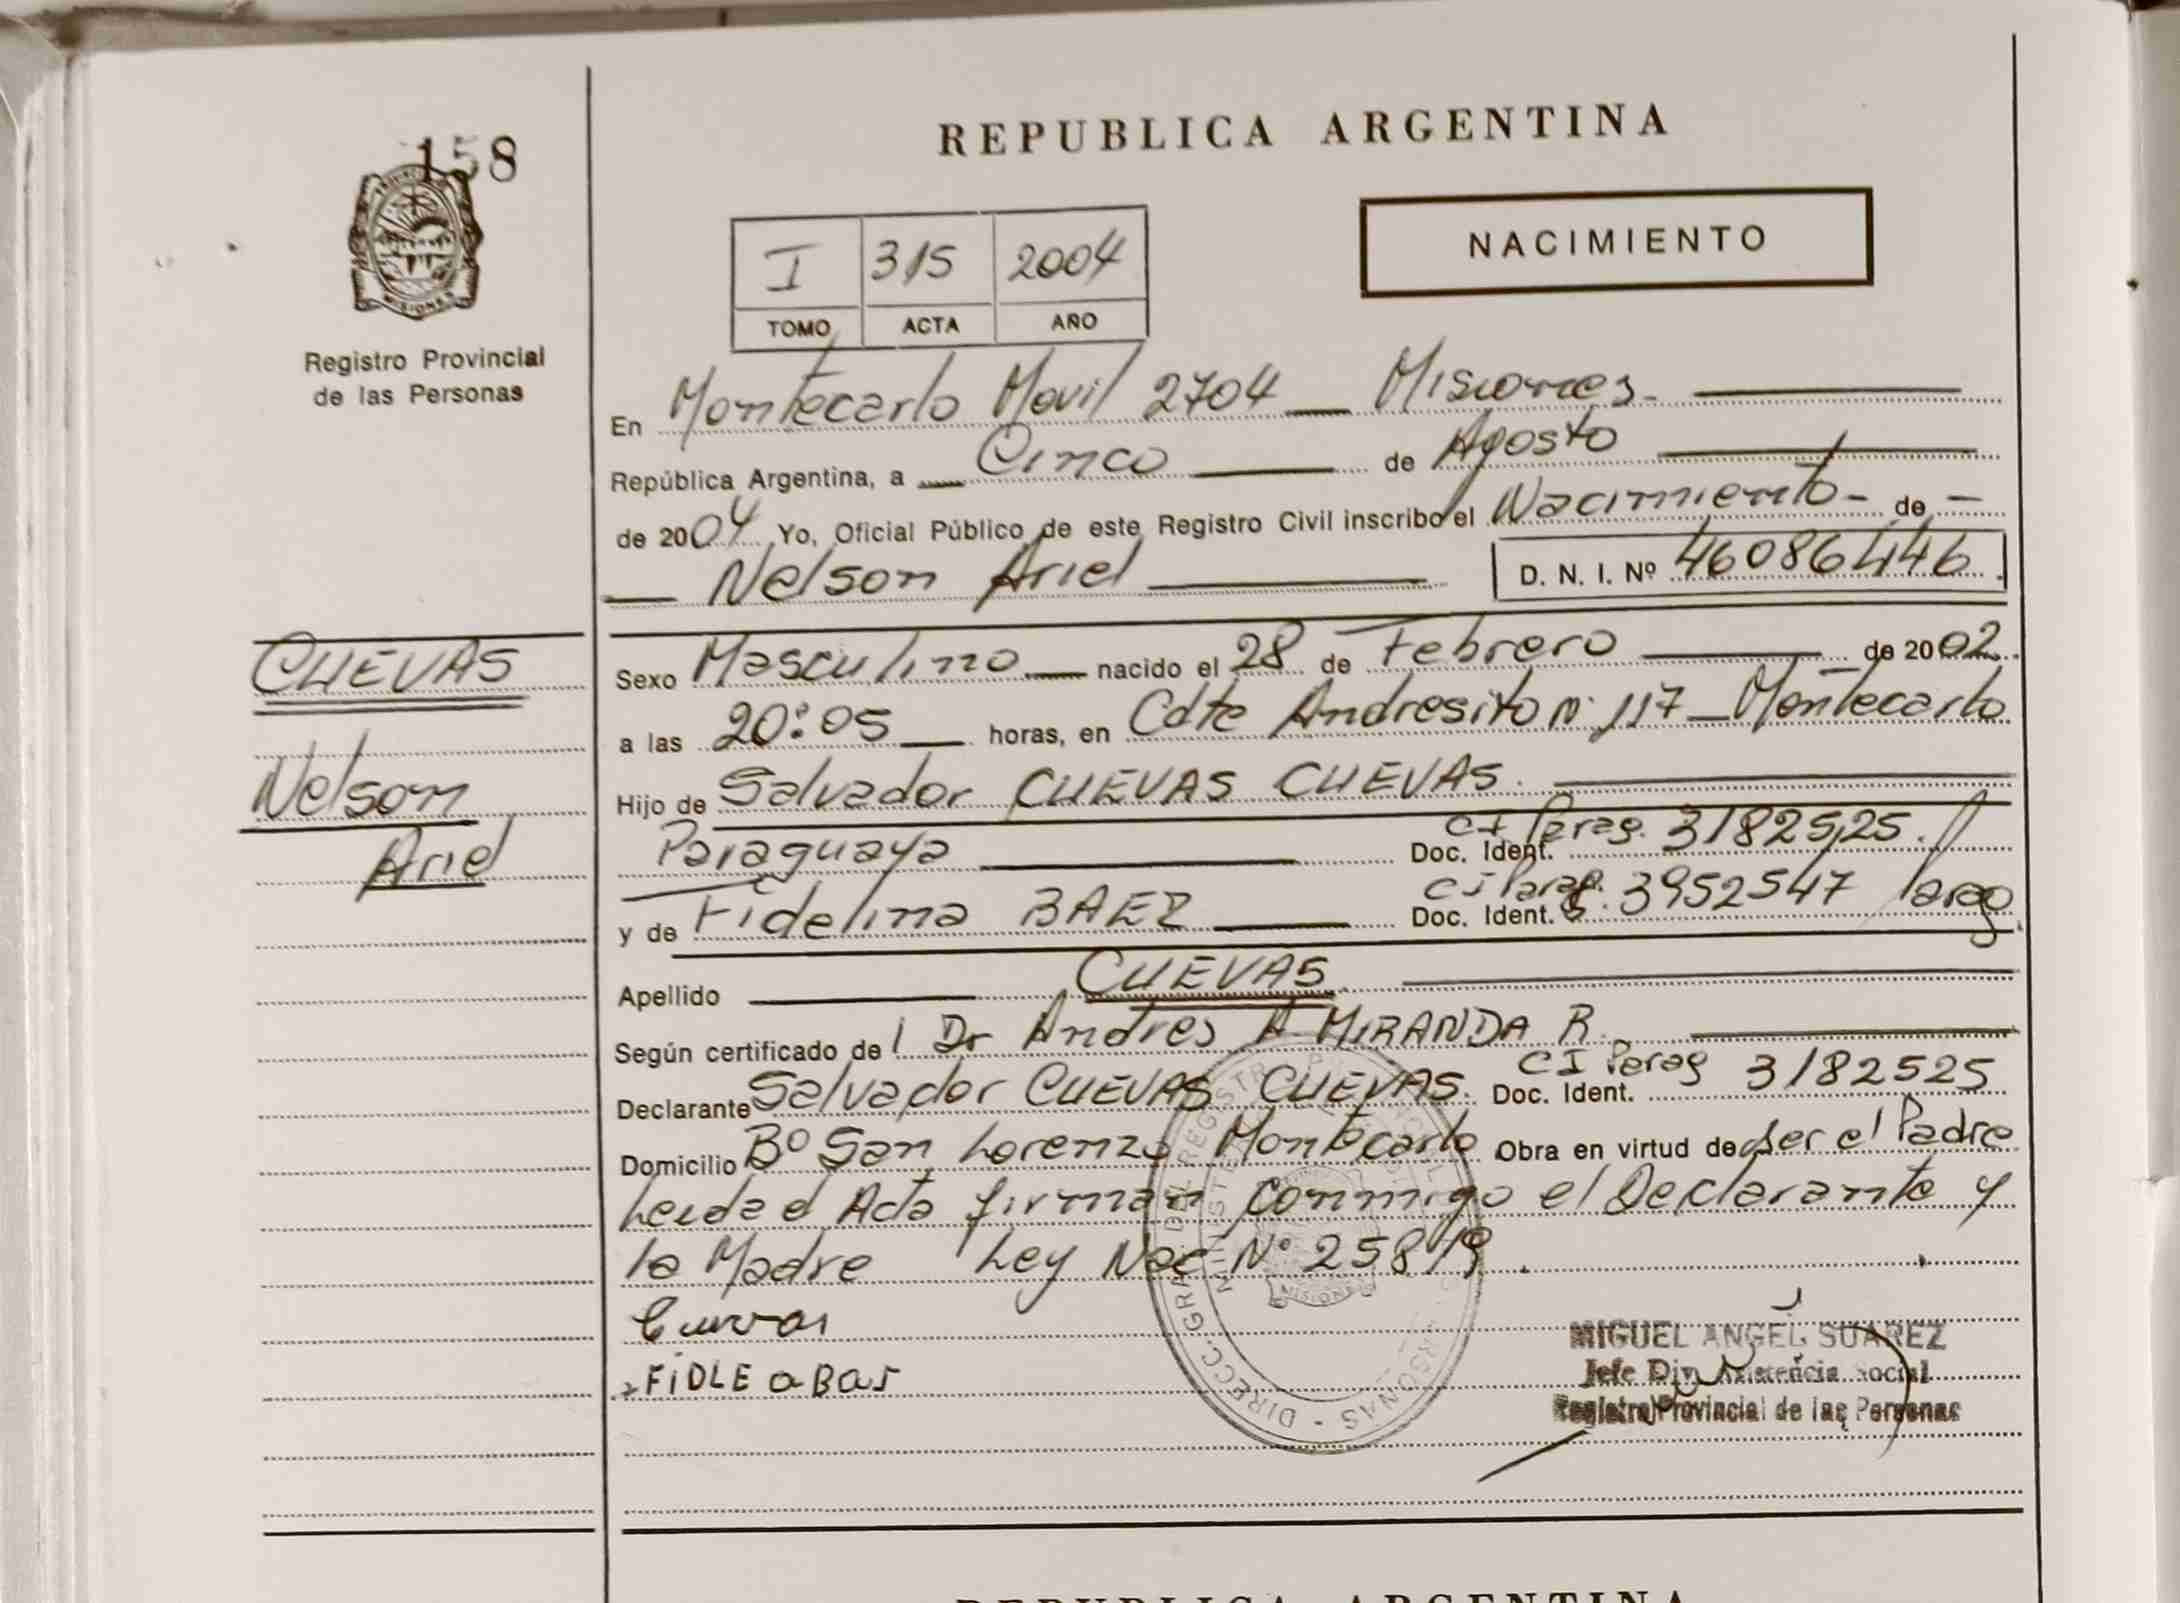 158
REPUBLICA ARGENTINA
NACIMIENTO
I 315 2004
TOMO ACTA AÑO
MISIONES
Registro Provincial
de las Personas
En Montecarlo Movil 2704 — Misiones.
República Argentina, a Cinco de Agosto
de 2004 Yo, Oficial Público de este Registro Civil inscribo el Nacimiento - de -
Nelson Ariel D. N. I. Nº 46086446
CUEVAS
Nelson
Ariel
Sexo Masculino nacido el 28 de Febrero de 2002
a las 20:05 horas, en Cdte Andresito Nº 117 - Montecarlo
Hijo de Salvador CUEVAS CUEVAS.
Paraguaya Doc. Ident. CI Parag. 3182525.
y de Fidelina BAEZ Doc. Ident. CI Parag. 3952547 Parag.
Apellido CUEVAS
Según certificado del Dr Andres A MIRANDA R.
Declarante Salvador CUEVAS CUEVAS. Doc. Ident. CI Parag 3182525
Domicilio Bº San Lorenzo Montecarlo Obra en virtud de ser el Padre
Leida el Acta firman conmigo el Declarante y
la Madre Ley Nac Nº 25819.
Cuevas
FiDLE a BaS
MIGUEL ANGEL SUAREZ
Jefe Div. Asistencia Social
Registro Provincial de las Personas
REPUBLICA ARGENTINA